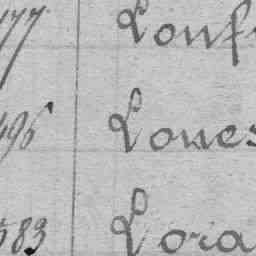 177 Lonf
496 Loues
583 Lora